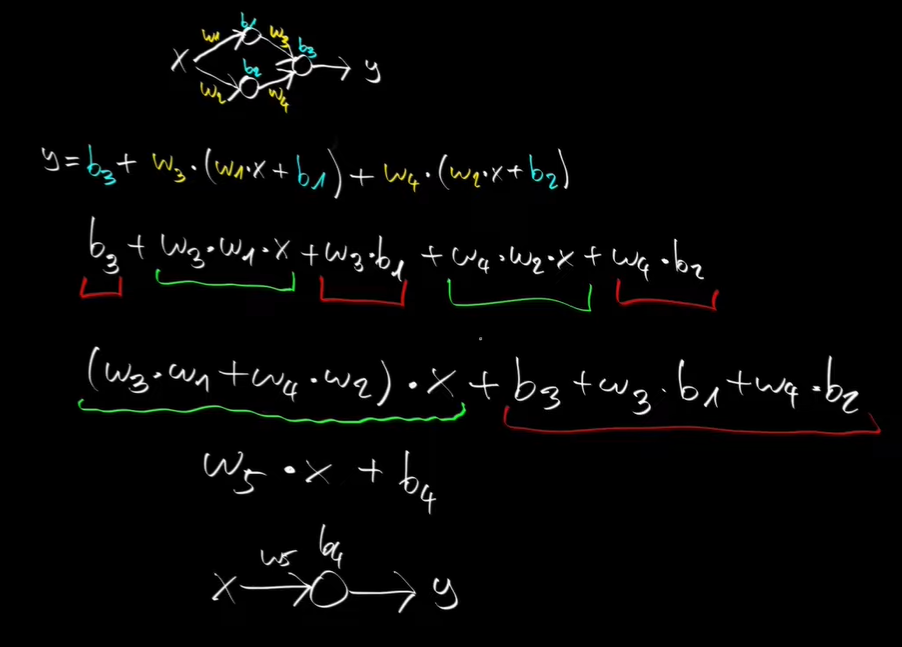 x w1 b1 w3 b3 y
w2 b2 w4
y = b3 + w3·(w1·x + b1) + w4·(w2·x + b2)
b3 + w3·w1·x + w3·b1 + w4·w2·x + w4·b2
(w3·w1 + w4·w2)·x + b3 + w3·b1 + w4·b2
w5·x + b4
x w5 b4 y